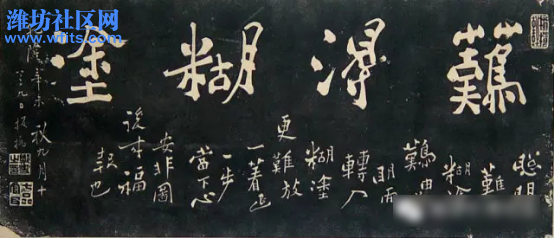 潍坊社区网
www.wfits.com
難得糊塗
聰明
難
糊塗
難由
明而
轉入
糊塗
更難放
一着退
一步
當下心
安非圖
後来福
報也
隆辛未秋九月十
九日板橋